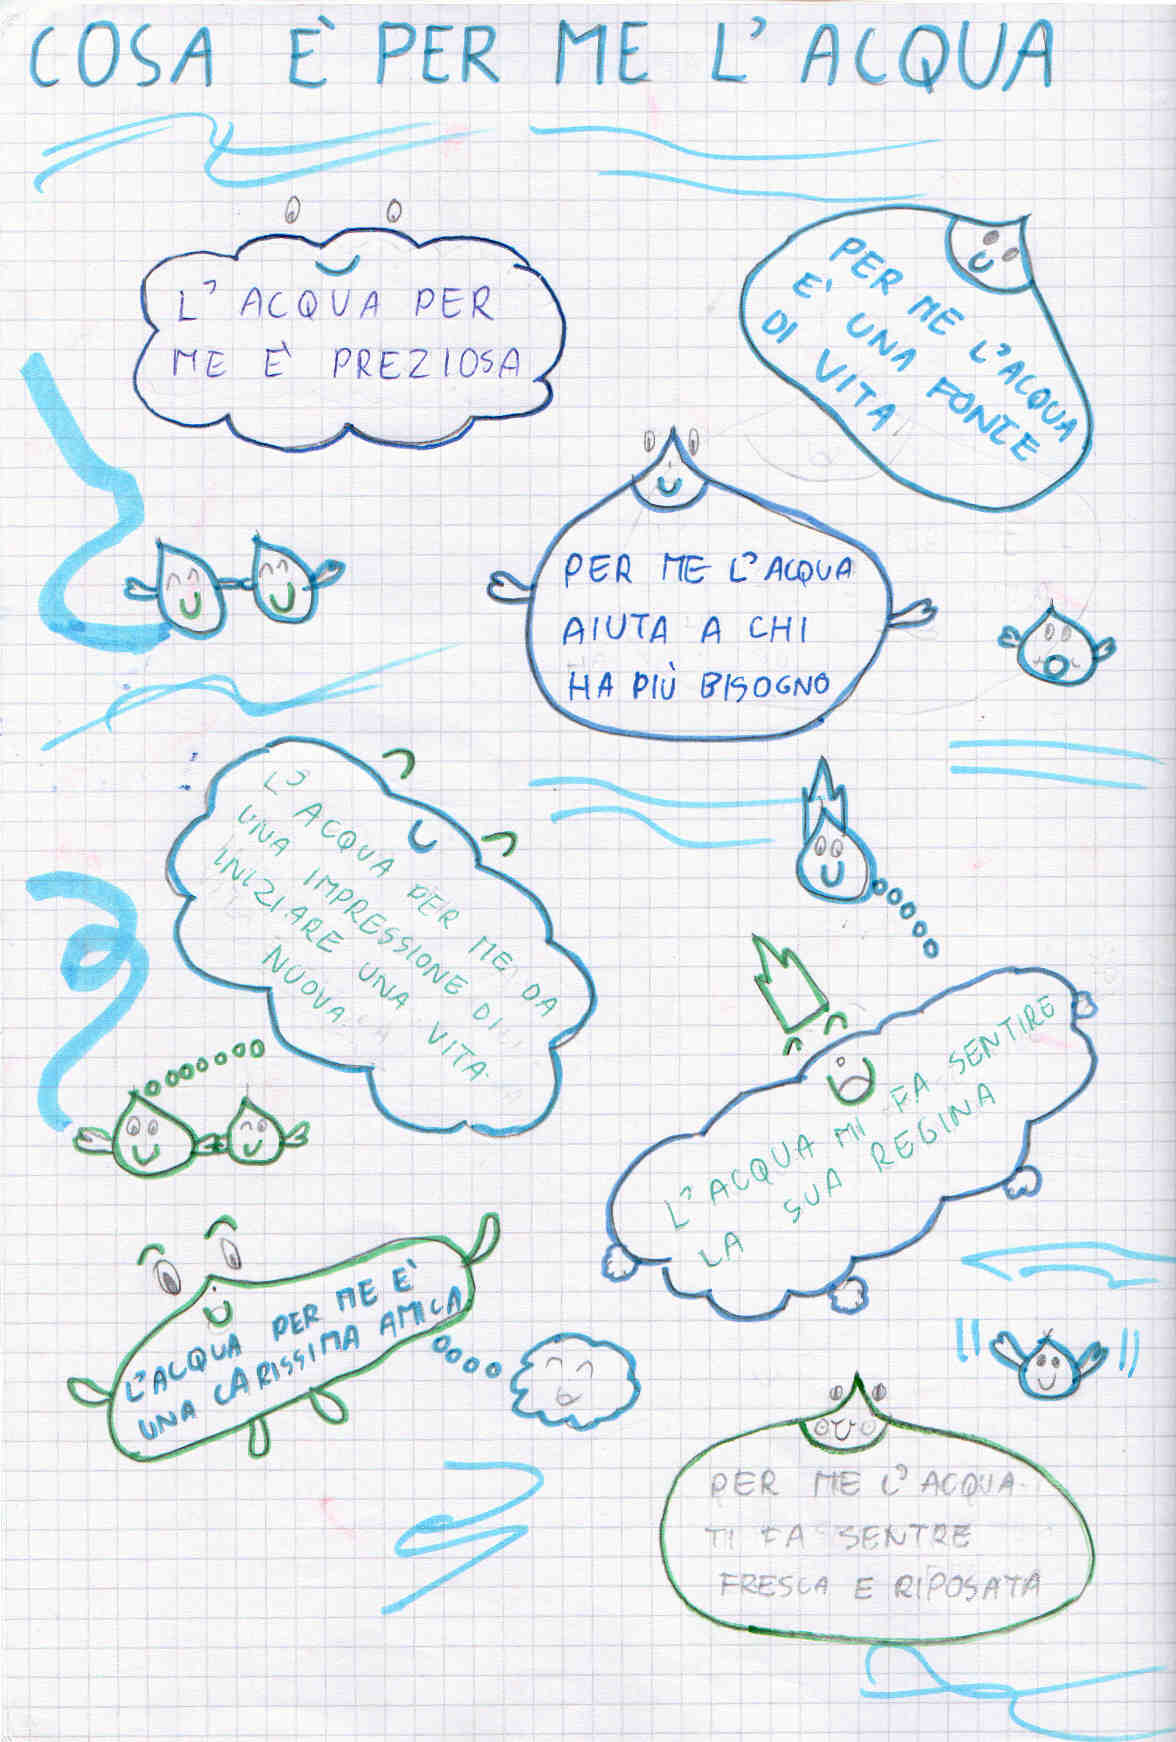 COSA È PER ME L'ACQUA
L'ACQUA PER
ME È PREZIOSA
PER ME L'ACQUA
E' UNA FONTE
DI VITA
PER ME L'ACQUA
AIUTA A CHI
HA PIÙ BISOGNO
L'ACQUA PER ME DA
UNA IMPRESSIONE DI
INIZIARE UNA VITA
NUOVA
L'ACQUA MI FA SENTIRE
LA SUA REGINA
L'ACQUA PER ME E'
UNA CARISSIMA AMICA
PER ME L'ACQUA
TI FA SENTRE
FRESCA E RIPOSATA